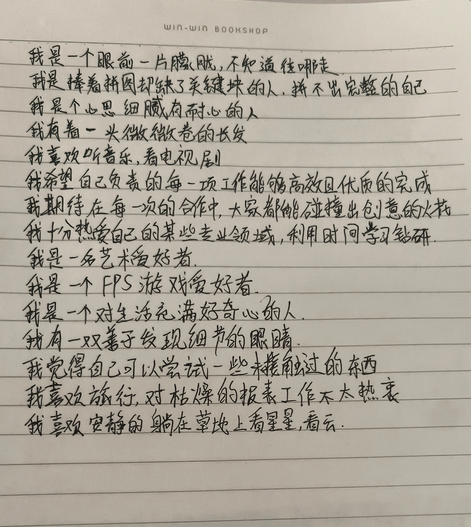 WIN-WIN BOOKSHOP
我是一个眼前一片朦胧,不知道往哪走
我是捧着拼图却缺了关键块的人,拼不出完整的自己
我是个心思细腻有耐心的人
我有着一头微微卷的长发
我喜欢听音乐,看电视剧
我希望自己负责的每一项工作能够高效且优质的完成
我期待在每一次的合作中,大家都能碰撞出创意的火花
我十分热爱自己的某些专业领域,利用时间学习钻研.
我是一名艺术爱好者.
我是一个FPS游戏爱好者.
我是一个对生活充满好奇心的人.
我有一双善于发现细节的眼睛.
我觉得自己可以尝试一些未接触过的东西
我喜欢旅行,对枯燥的报表工作不太热衷
我喜欢安静的躺在草地上看星星,看云.